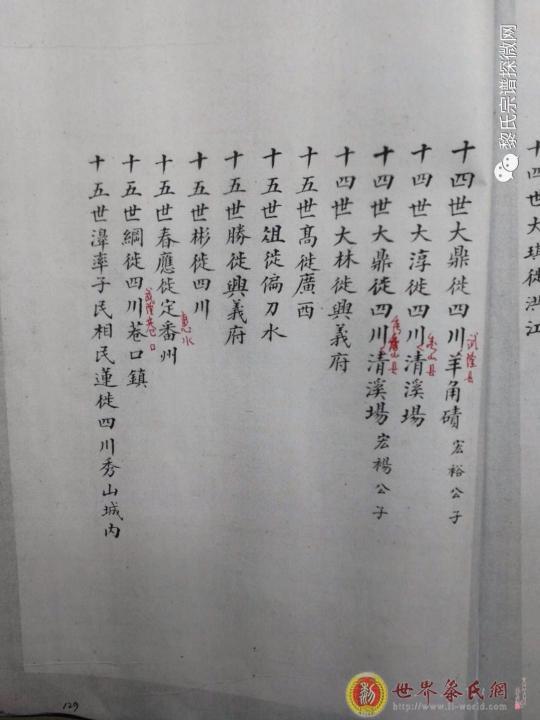 十四世大琪徙洪江
十四世大鼎徙四川羊角磧 宏裕公子
武隆县
十四世大淳徙四川清溪場
秀山县
十四世大鼎徙四川清溪場 宏楊公子
秀山县
十四世大林徙興義府
十五世髙徙廣西
十五世俎徙偏刀水
十五世勝徙興義府
十五世彬徙四川
十五世春應徙定番州
惠水
十五世綱徙四川巷口鎮
武隆巷口
十五世漳率子民相民蓮徙四川秀山城内
129
黎氏宗谱探微网
世界黎氏網
www.li-world.com